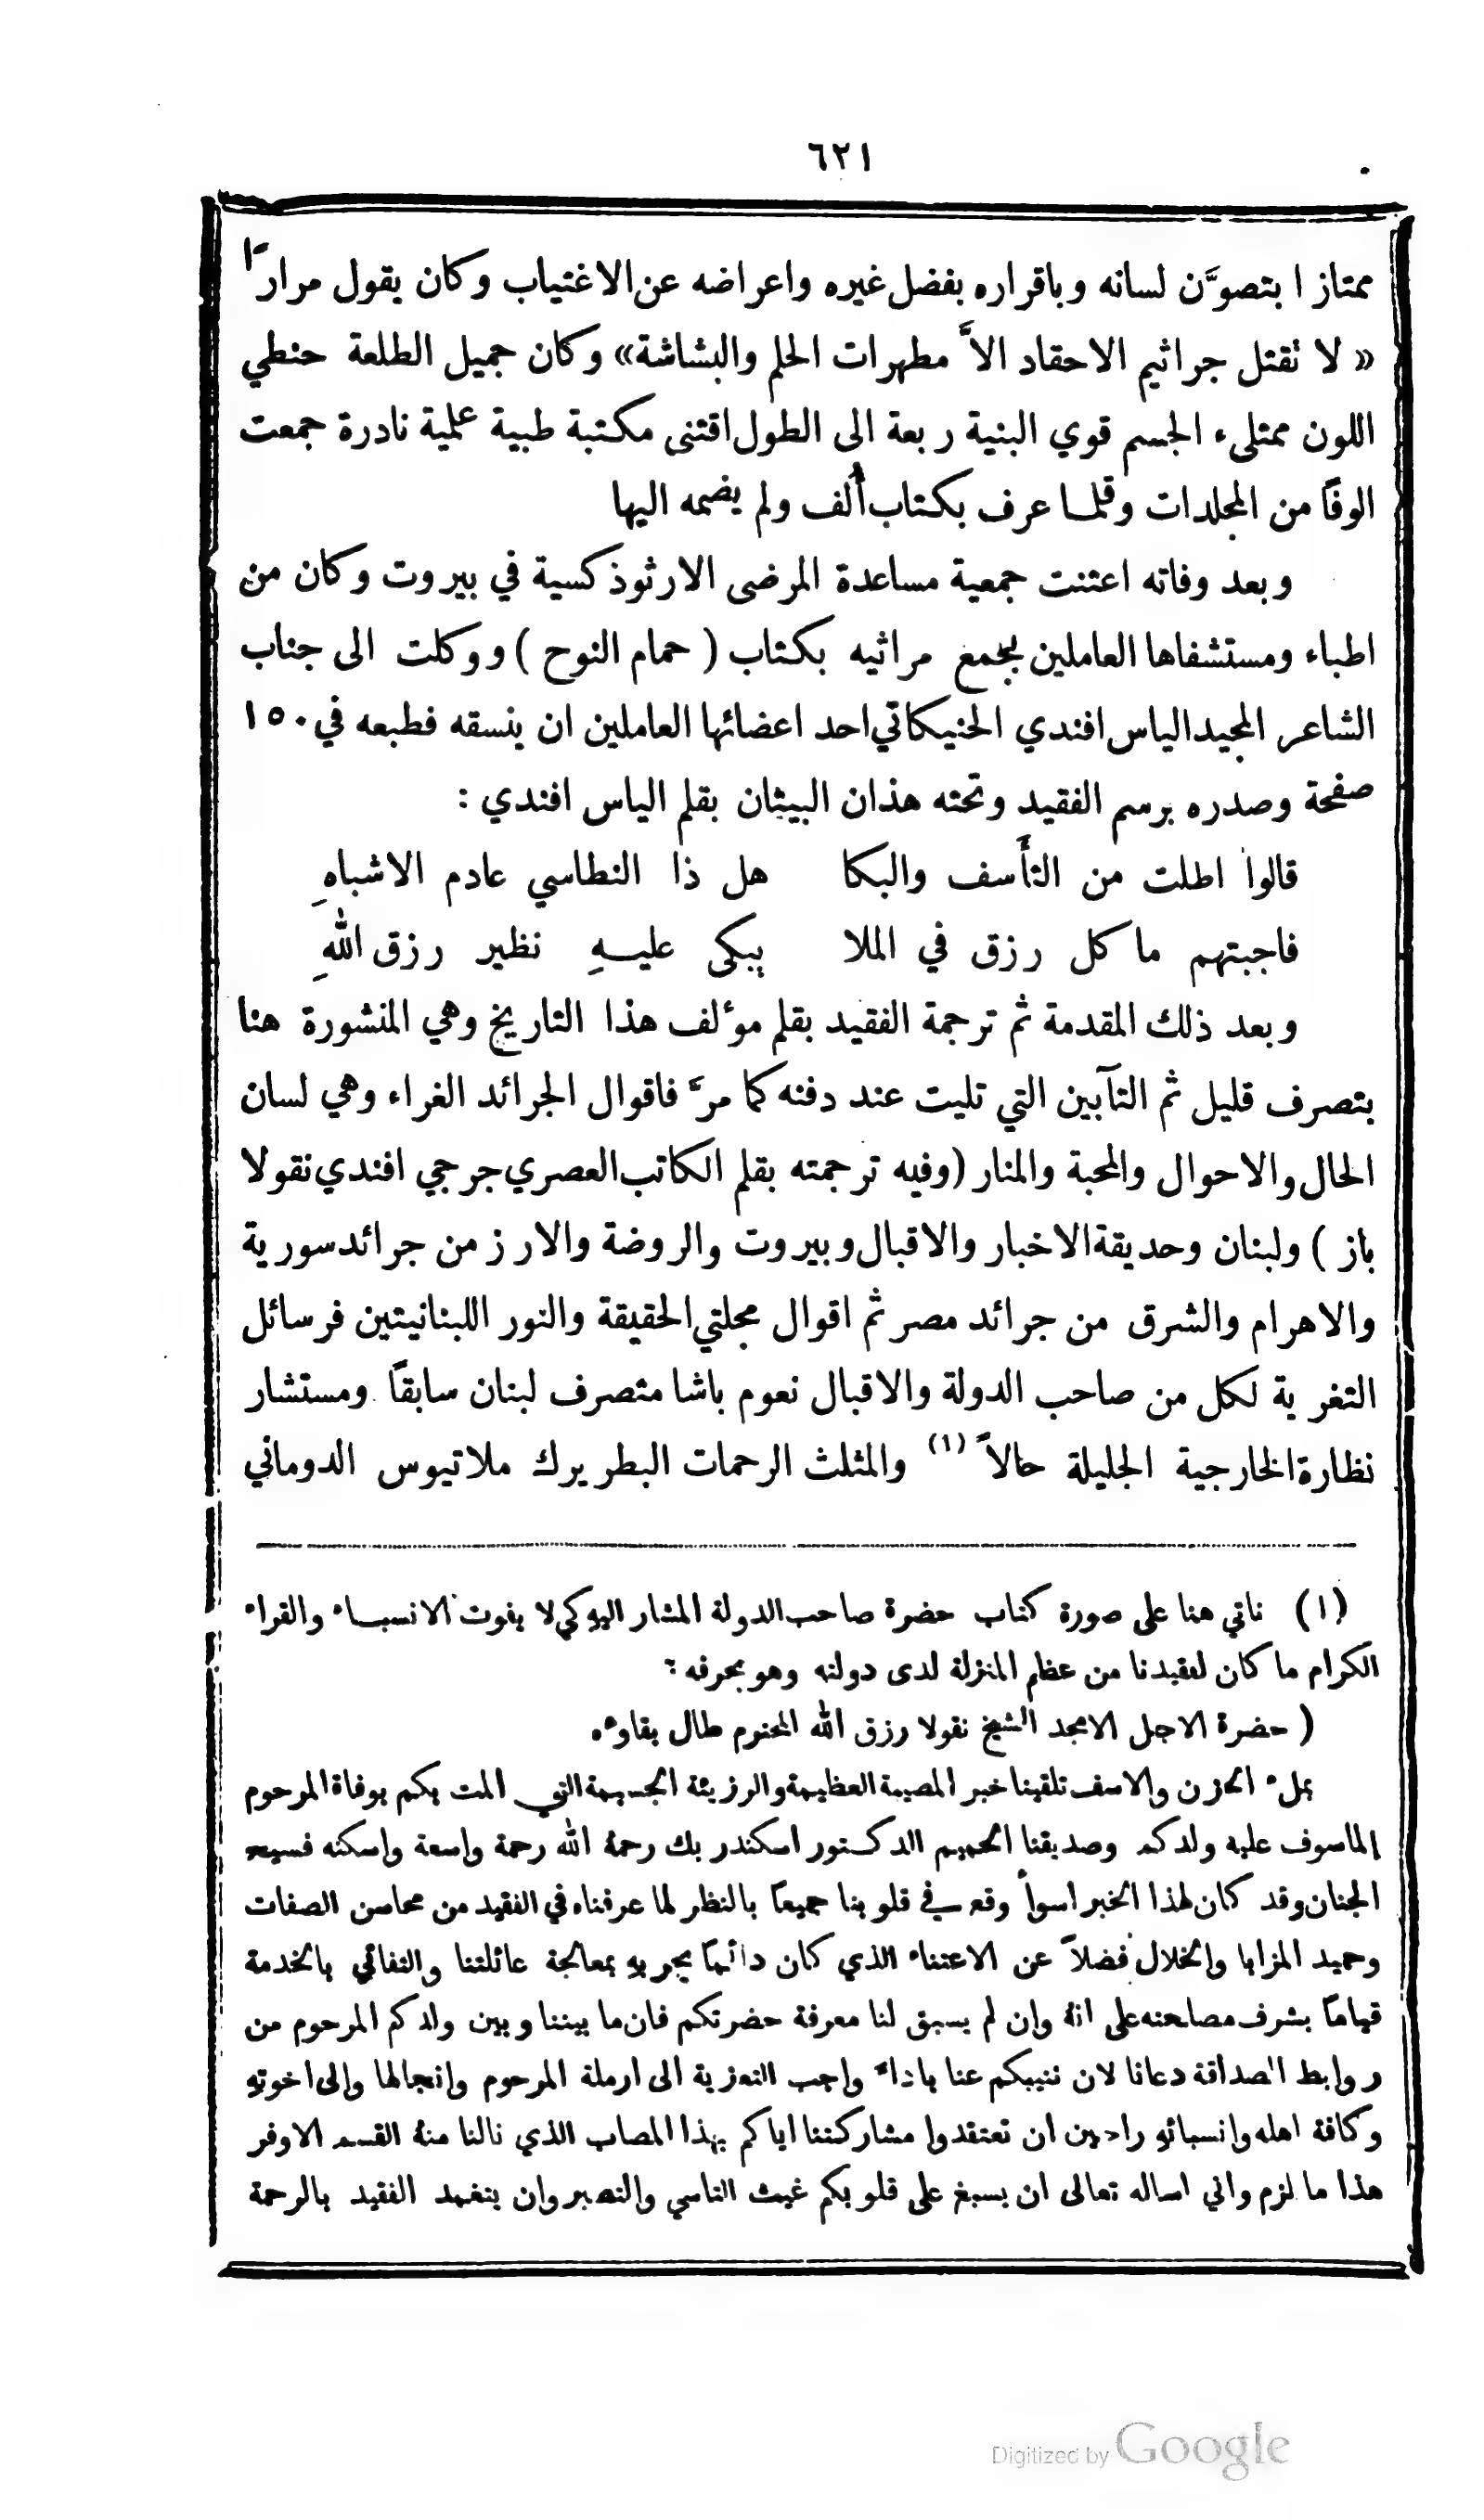 ٦٢١
ممتازا بتصوَّن لسانه وباقراره بفضل غيره واعراضه عن الاغتياب وكان يقول مراراً
« لا تقتل جراثيم الاحقاد الاَّ مطهرات الحلم والبشاشة» وكان جميل الطلعة حنطي
اللون ممتلىء الجسم قوي البنية ربعة الى الطول اقتنى مكتبة طبية علمية نادرة جمعت
الوفاً من المجلدات وقلما عرف بكتاب أُلف ولم يضمه اليها
وبعد وفاته اعتنت جمعية مساعدة المرضى الارثوذكسية في بيروت وكان من
اطباء ومستشفاها العاملين بجمع مراثيه بكتاب ( حمام النوح ) ووكلت الى جناب
الشاعر المجيد الياس افندي الحنيكاتي احد اعضائها العاملين ان ينسقه فطبعه في ١٥٠
صفحة وصدره برسم الفقيد وتحته هذان البيتان بقلم الياس افندي :
قالوا اطلت من التأسف والبكا هل ذا النطاسي عادم الاشباهِ
فاجبتهم ما كل رزق في الملا يبكى عليهِ نظير رزق اللهِ
وبعد ذلك المقدمة ثم ترجمة الفقيد بقلم مؤلف هذا التاريخ وهي المنشورة هنا
بتصرف قليل ثم التآبين التي تليت عند دفنه كما مرَّ فاقوال الجرائد الغراء وهي لسان
الحال والاحوال والمحبة والمنار (وفيه ترجمته بقلم الكاتب العصري جرجي افندي نقولا
باز ) ولبنان وحديقة الاخبار والاقبال وبيروت والروضة والارز من جرائد سورية
والاهرام والشرق من جرائد مصر ثم اقوال مجلتي الحقيقة والنور اللبنانيتين فرسائل
التغرية لكل من صاحب الدولة والاقبال نعوم باشا متصرف لبنان سابقاً ومستشار
نظارة الخارجية الجليلة حالاً (١) والمثلث الرحمات البطريرك ملاتيوس الدوماني
(١) ناتي هنا على صورة كتاب حضرة صاحب الدولة المشار اليهِ كي لا يفوت الانسباء والقراء
الكرام ما كان لفقيدنا من عظم المنزلة لدى دولته وهو بحرفه :
( حضرة الاجل الامجد الشيخ نقولا رزق الله المحترم طال بقاوءه
بملء الحزن والاسف تلقينا خبر المصيبة العظيمة والرزيئة الجسيمة التي المت بكم بوفاة المرحوم
الماسوف عليه ولدكم وصديقنا الحميم الدكتور اسكندر بك رحمهُ الله رحمة واسعة واسكنه فسيح
الجنان وقد كان لهذا الخبر اسوأ وقع في قلوبنا جميعاً بالنظر لما عرفناه في الفقيد من محاسن الصفات
وحميد المزايا والخلال فضلاً عن الاعتناء الذي كان دائماً يجريه بمعالجة عائلتنا والتفاني بالخدمة
قياماً بشرف مصلحته على انهُ وان لم يسبق لنا معرفة حضرتكم فان ما بيننا وبين ولدكم المرحوم من
روابط الصداقة دعانا لان ننيبكم عنا باداء واجب التعزية الى ارملة المرحوم وانجالها والى اخوتهِ
وكافة اهله وانسبائهِ راجين ان تعتقدوا مشاركتنا اياكم بهذا المصاب الذي نالنا منهُ القسم الاوفر
هذا ما لزم واني اساله تعالى ان يسبغ على قلوبكم غيث التاسي والصبر وان يتغمد الفقيد بالرحمة
Digitized by Google